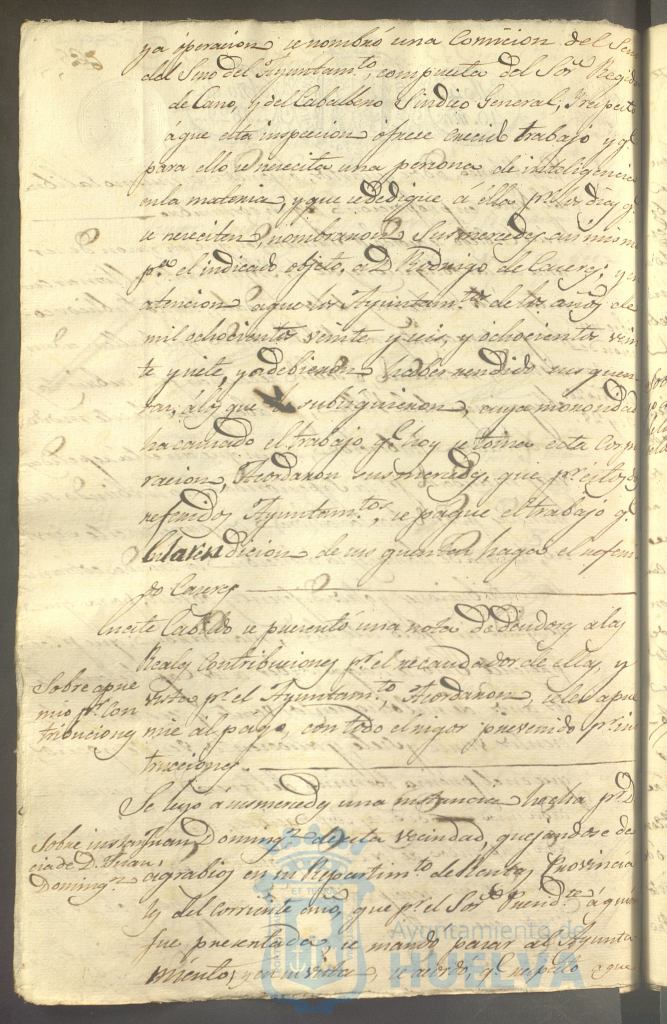 ya operacion se nombró una Comicion del Seno
del Smo del Ayuntam.to, compuesta del Sor. Regidor
de Cano, y del Caballero Sindico General; y respecto
á que esta inspeccion ofrece crecido trabajo y q.e
para ello se necesita una persona de inteligencia
en la materia, y que se dedique á ella pr. los dias q.e
se necesiten, nombraron Sus mercedes asi mismo
p.a el indicado objeto, a D. Rodrigo de Caceres; y en
atencion a que los Ayuntam.tos de los años de
mil ochocientos veinte y seis, y ochocientos vein
te y siete, ya debieron haber rendido sus quen
tas, á los que subsiguieron, cuya morosidad
ha causado el trabajo q.e hoy se toma esta Corpo
racion, Acordaron sus mercedes, que pr.
referidos Ayuntam.tos, se pague el trabajo q.e
en la rendicion de sus quentas haga el referi
do Caceres
En este Cabildo se presentó una nota de Deudores a las
Reales Contribuciones pr. el recaudador de ellas, y
Sobre apre
mio pr. Con
tribuciones
vista pr. el Ayuntam.to, Acordaron, se les apre
mie al pago, con todo el rigor prevenido pr. ins
trucciones.
Se leyo á sus mercedes una instancia hecha pr. D.
Sobre instan
cia de D. Juan
Doming.z
Juan Doming.z de esta vecindad, quejandose de
agrabios en su Repartim.to de Rentas Provincia
les del corriente año, que pr. el Sor. Presid.te á quien
fue presentada, se mandó pasar al Ayunta
miento; y en su vista, se acordó, q.e respecto a que
Ayuntamiento de
HUELVA